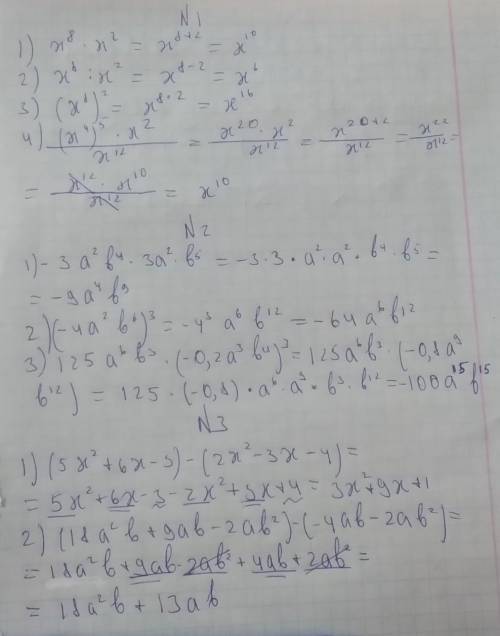 N1
1) x⁸ · x² = x⁸⁺² = x¹⁰
2) x⁸ : x² = x⁸⁻² = x⁶
3) (x⁸)² = x⁸·² = x¹⁶
4) (x⁴)⁵ · x² / x¹² = x²⁰ · x² / x¹² = x²⁰⁺² / x¹² = x²² / x¹² =
= x¹² · x¹⁰ / x¹² = x¹⁰
N2
1) -3a²b⁴ · 3a² · b⁵ = -3·3·a²·a²·b⁴·b⁵ =
= -9a⁴b⁹
2) (-4a²b⁴)³ = -4³a⁶b¹² = -64a⁶b¹²
3) 125a⁶b³ · (-0,2a³b⁴)³ = 125a⁶b³ · (-0,8a⁹
b¹²) = 125 · (-0,8) · a⁶ · a⁹ · b³ · b¹² = -100a¹⁵b¹⁵
N3
1) (5x² + 6x - 3) - (2x² - 3x - 4) =
= 5x² + 6x - 3 - 2x² + 3x + 4 = 3x² + 9x + 1
2) (18a²b + 9ab - 2ab²) - (-4ab - 2ab²) =
= 18a²b + 9ab - 2ab² + 4ab + 2ab² =
= 18a²b + 13ab